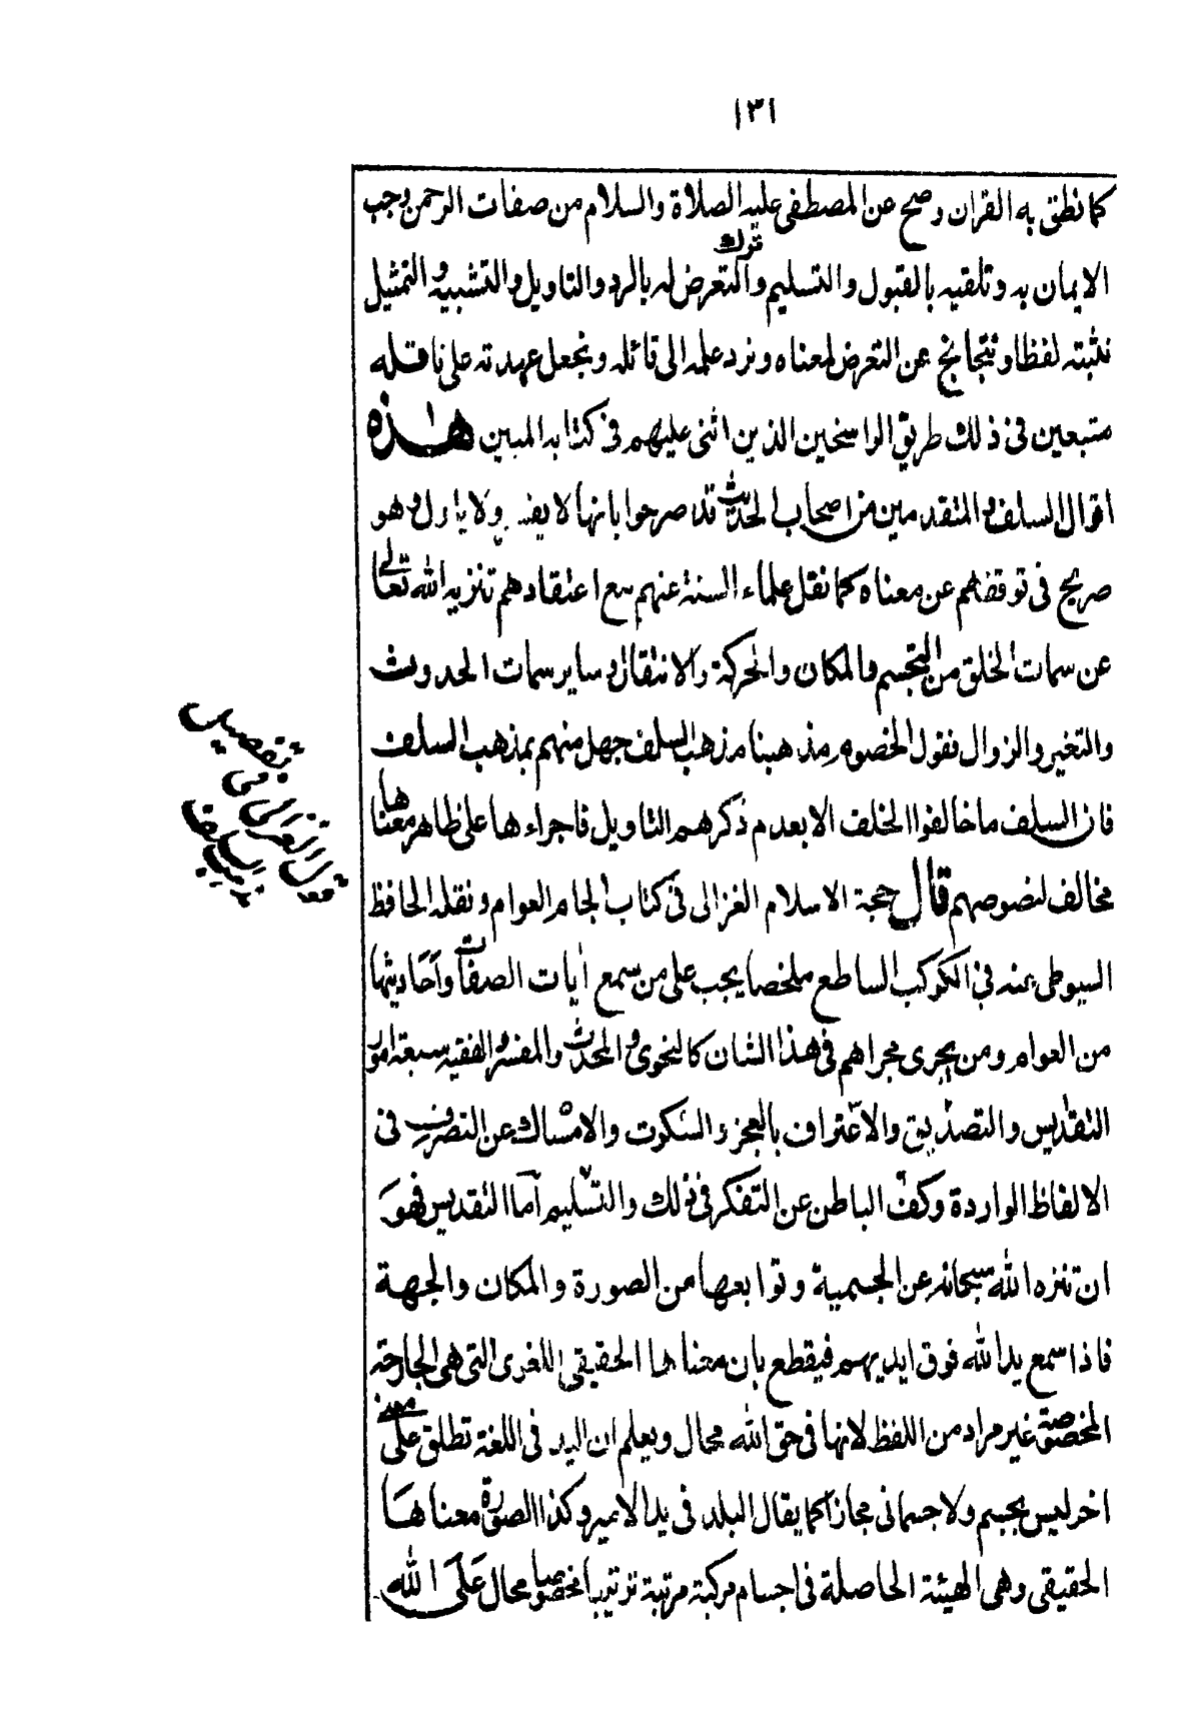 ١٣١
كما نطق به القران وصح عن المصطفى عليه الصلاة والسلام من صفات الرحمن وجب
الايمان به وتلقيه بالقبول والتسليم وترك التعرض له بالرد والتاويل والتشبيه والتمثيل
نثبته لفظا ونتجانح عن التعرض لمعناه ونرد علمه الى قائله ونجعل عهدته على ناقله
متبعين فى ذلك طريق الراسخين الذين اثنى عليهم فى كتابه المبين هذه
اقوال السلف والمتقدمين من اصحاب الحديث قد صرحوا بانها لا يفسر ولا يأول وهو
صريح فى توقفهم عن معناه كما نقل علماء السنة عنهم مع اعتقادهم تنزيه الله تعالى
عن سمات الخلق من التجسم والمكان والحركة والانتقال وساير سمات الحدوث
والتغير والزوال فقول الخصوم مذهبنا مذهب السلف جهل منهم بمذهب السلف
فان السلف ما خالفوا الخلف الا بعدم ذكرهم التاويل فاجراءها على ظاهر معناها
مخالف لنصوصهم قال حجة الاسلام الغزالى فى كتاب الجام العوام ونقله الحافظ
السيوطى عنه فى الكوكب الساطع ملخصا يجب على من سمع ايات الصفات واحاديثها
من العوام ومن يجرى مجراهم فى هذا الشان كالنحوى والمحدث والمفسر والفقيه سبعة امور
التقديس والتصديق والاعتراف بالعجز والسكوت والامساك عن التصرف فى
الالفاظ الواردة وكف الباطن عن التفكر فى ذلك والتسليم اما التقديس فهو
ان ننزه الله سبحانه عن الجسمية وتوابعها من الصورة والمكان والجهة
فاذا سمع يد الله فوق ايديهم فيقطع بان معناها الحقيقى اللغوى التى هى الجارحة
المخصوصة غير مراد من اللفظ لانها فى حق الله محال ويعلم ان اليد فى اللغة تطلق على معنى
اخر ليس بجسم ولا جسمانى مجازا كما يقال البلد فى يد الامير وكذا الصورة معناها
الحقيقى وهى الهيئة الحاصلة فى اجسام مركبة مرتبة ترتيبا مخصوصا محال على الله
تفصيل
قول الغزالى فى
مذهب السلف